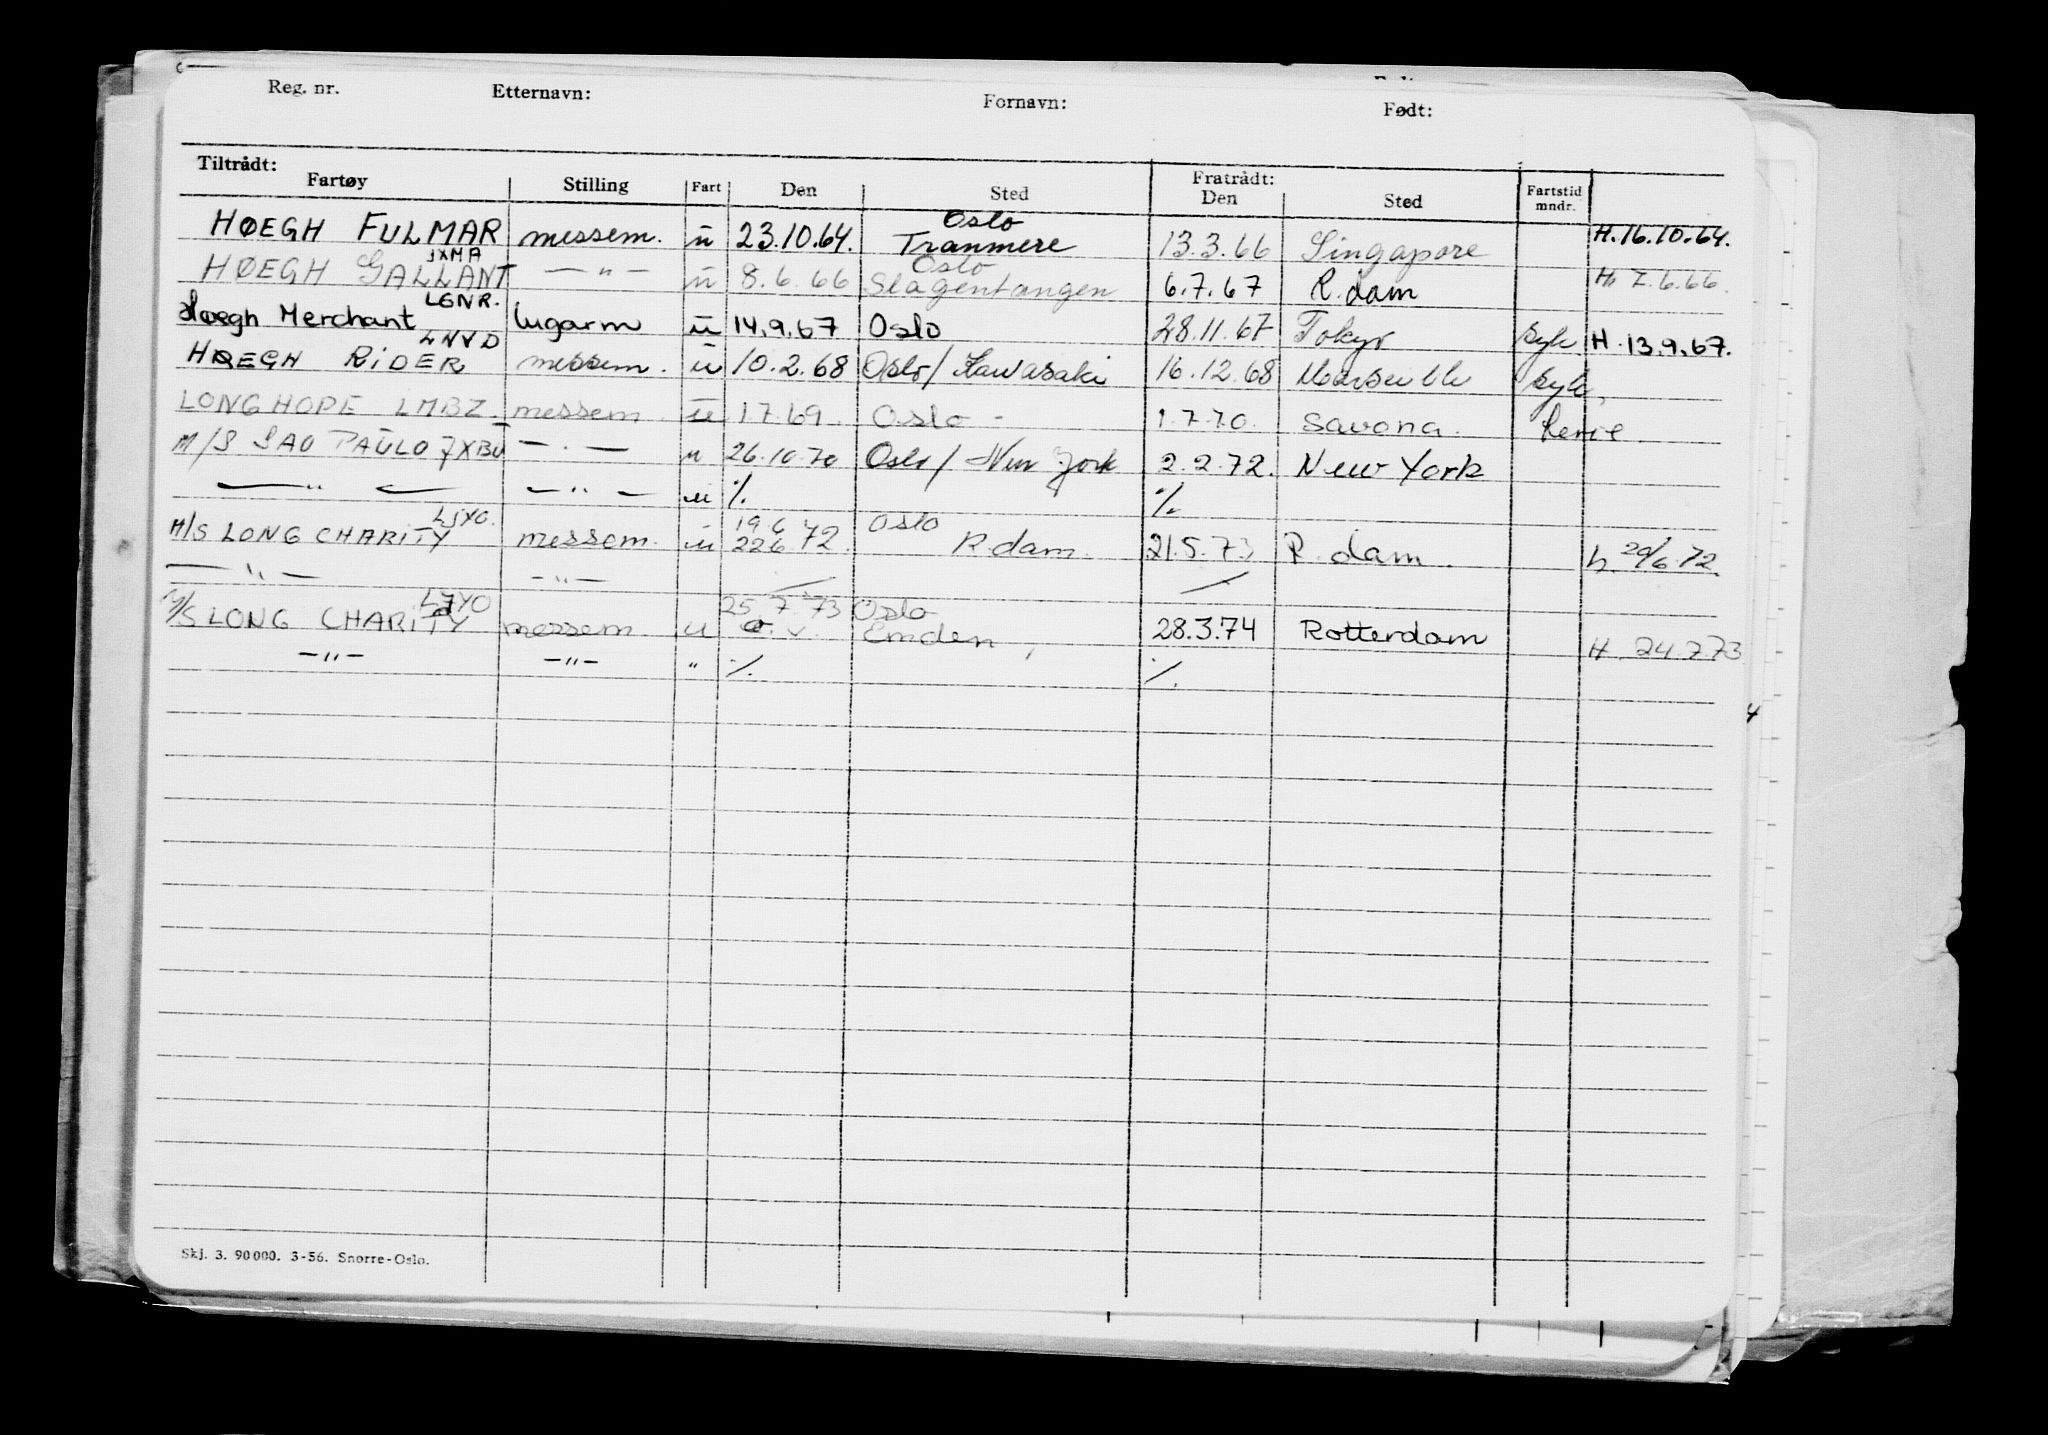 Reg. nr. Etternavn: Fornavn: Født:
Tiltrådt: Fratrådt:
Fartøy Stilling Fart Den Sted Den Sted Fartstid mndr.
Oslo
HØEGH FULMAR messem. u 23.10.64. Tranmere 13.3.66 Singapore H.16.10.64.
JXMA Oslo
HØEGH GALLANT — " — u 8.6.66 Slagentangen 6.7.67 R.dam H. 7.6.66.
LGNR.
Hoegh Merchant lugarm u 14.9.67 Oslo 28.11.67 Tokyo syk H. 13.9.67.
HØEGH RIDER messem. u 10.2.68 Oslo/Kawasaki 16.12.68 Marseille syk,
LONGHOPE LMBZ. messem. u 1.7.69. Oslo - 1.7.70. Savona. ferie.
M/S SAO PAULO JXBU — . — u 26.10.70 Oslo/New York 2.2.72. New York
— " — — " — u %. %.
LJYO. 19 6 Oslo
M/S LONG CHARITY messem. u 22.6.72. R.dam. 21.5.73 R.dam. h. 20/6.72.
— " — — " —
LJYO 25.7.73 Oslo
M/S LONG CHARITY messem. u Emden, 28.3.74 Rotterdam H. 24.7.73
— " — — " — " %. %.
Skj. 3. 90000. 3-56. Snorre-Oslo.